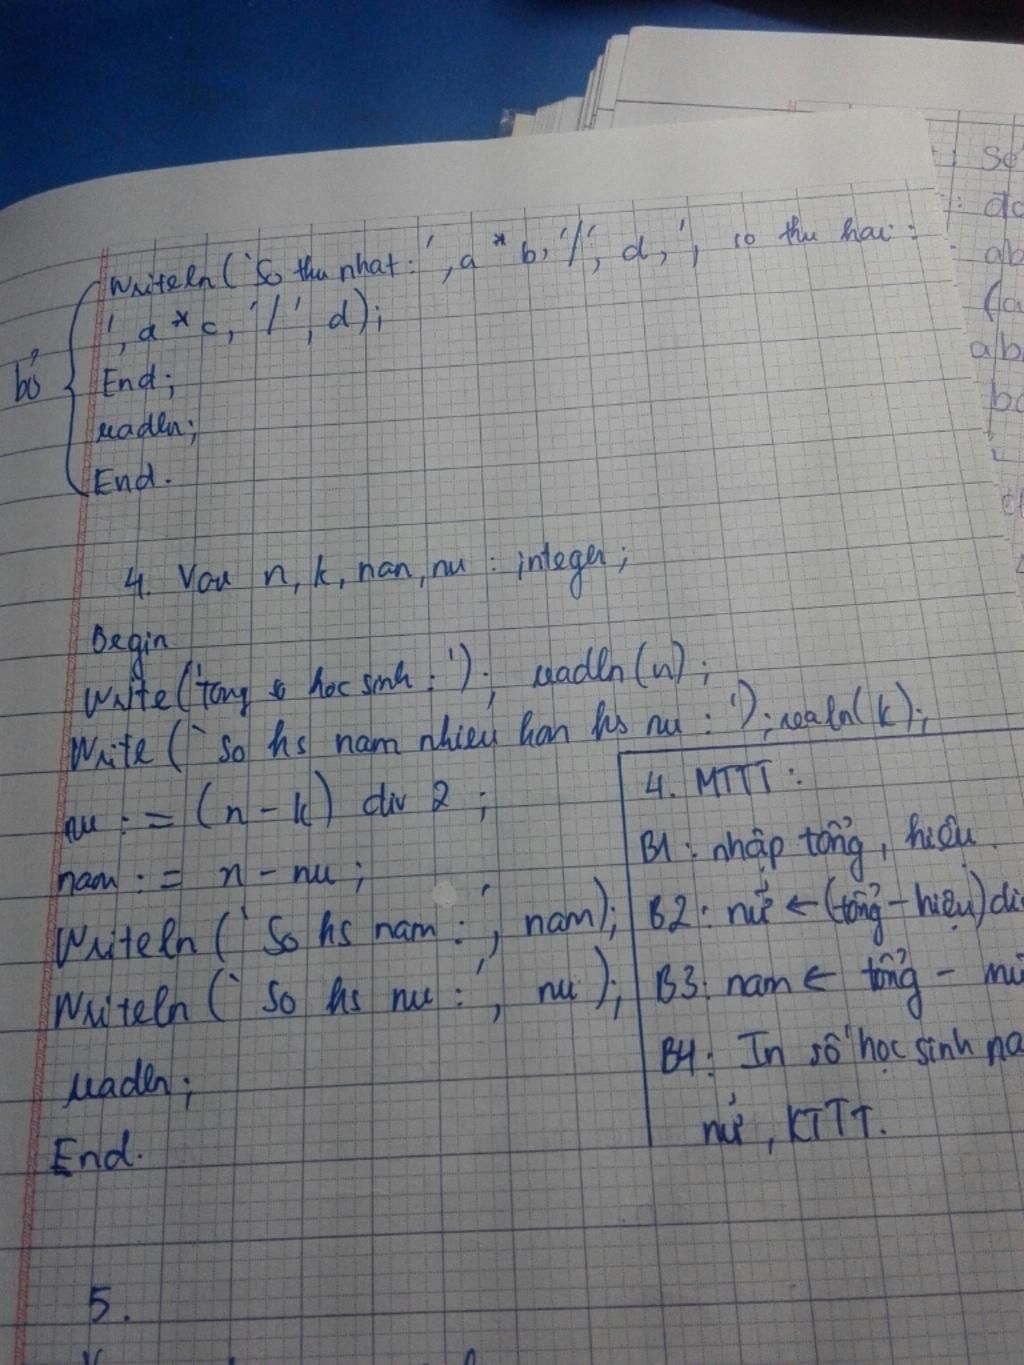 Writeln('So thu nhat:', a*b,'/', d,', so thu hai:
', a*c, '/', d);
bỏ
End;
readln;
End.
4. Var n, k, nan, nu : integer;
Begin
Write('tong so hoc sinh : '); readln(n);
Write('So hs nam nhieu hon hs nu : '); realn(k);
nu := (n-k) div 2;
nam := n - nu;
Writeln('So hs nam :', nam);
Writeln('So hs nu :', nu);
readln;
End.
4. MTTT :
B1 : nhập tổng, hiệu.
B2: nữ ← (tổng - hiệu) di
B3: nam ← tổng - nữ
B4: In số học sinh na
nữ, KTTT.
5.
số
ab
(a
ab